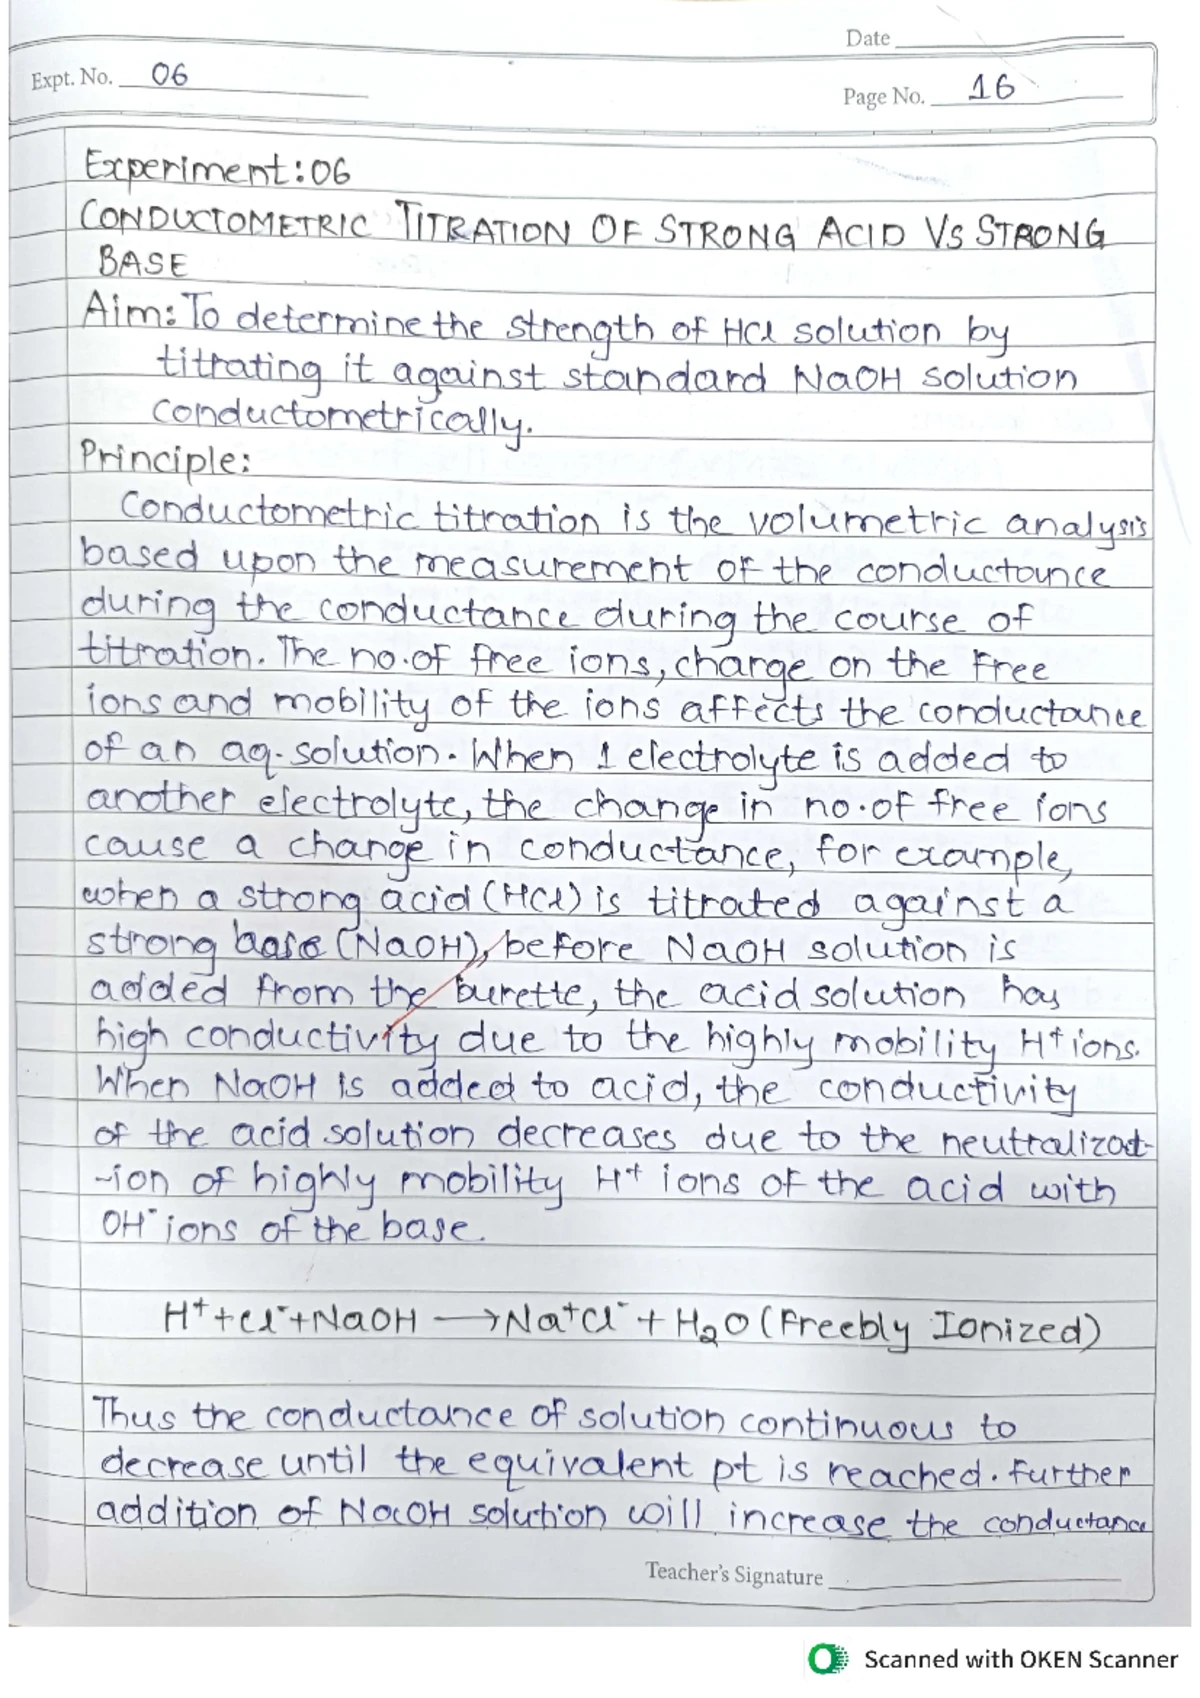 Date
Expt. No. 06
Page No. 16
Experiment: 06
CONDUCTOMETRIC TITRATION OF STRONG ACID VS STRONG
BASE
Aim: To determine the strength of HCl solution by
titrating it against standard NaOH solution
conductometrically.
Principle:
Conductometric titration is the volumetric analysis
based upon the measurement of the conductance
during the conductance during the course of
titration. The no. of free ions, charge on the free
ions and mobility of the ions affects the conductance
of an aq. solution. When 1 electrolyte is added to
another electrolyte, the change in no. of free ions
cause a change in conductance, for example,
when a strong acid (HCl) is titrated against a
strong base (NaOH), before NaOH solution is
added from the burette, the acid solution has
high conductivity due to the highly mobility H⁺ ions.
When NaOH is added to acid, the conductivity
of the acid solution decreases due to the neutralizat-
-ion of highly mobility H⁺ ions of the acid with
OH⁻ ions of the base.
H⁺ + Cl⁻ + NaOH ⟶ Na⁺Cl⁻ + H₂O (Freebly Ionized)
Thus the conductance of solution continuous to
decrease until the equivalent pt is reached. Further
addition of NaOH solution will increase the conductance
Teacher's Signature
Scanned with OKEN Scanner